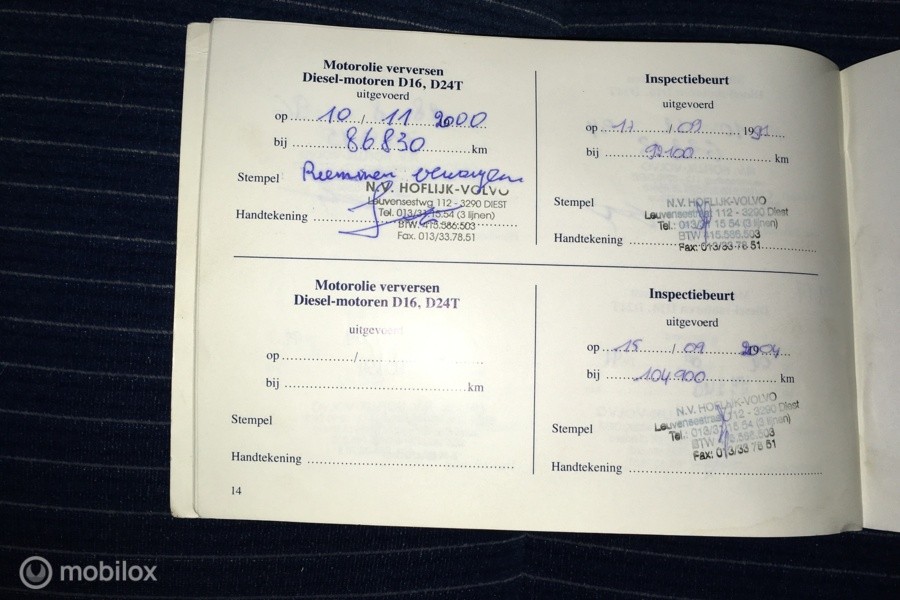 Motorolie verversen
Diesel-motoren D16, D24T
uitgevoerd
op 10 / 11 2000
bij 86830 km
Stempel Riemmen vervangen
N.V. HOFLIJK-VOLVO
Leuvensestwg 112 - 3290 DIEST
Tel. 013/31.15.54 (3 lijnen)
BTW. 415.586.503
Fax. 013/33.78.51
Handtekening
Inspectiebeurt
uitgevoerd
op 17 / 09 19
bij 92100 km
Stempel
N.V. HOFLIJK-VOLVO
Leuvensestraat 112 - 3290 Diest
Tel.: 013/31 15 54 (3 lijnen)
BTW 415.586.503
Fax: 013/33 78 51
Handtekening
Motorolie verversen
Diesel-motoren D16, D24T
uitgevoerd
op / 
bij km
Stempel
Handtekening
Inspectiebeurt
uitgevoerd
op 15 / 09 2004
bij 104900 km
Stempel
N.V. HOFLIJK-VOLVO
Leuvensestraat 112 - 3290 Diest
Tel.: 013/31 15 54 (3 lijnen)
BTW 415.586.503
Fax: 013/33 78 51
Handtekening
14
mobilox